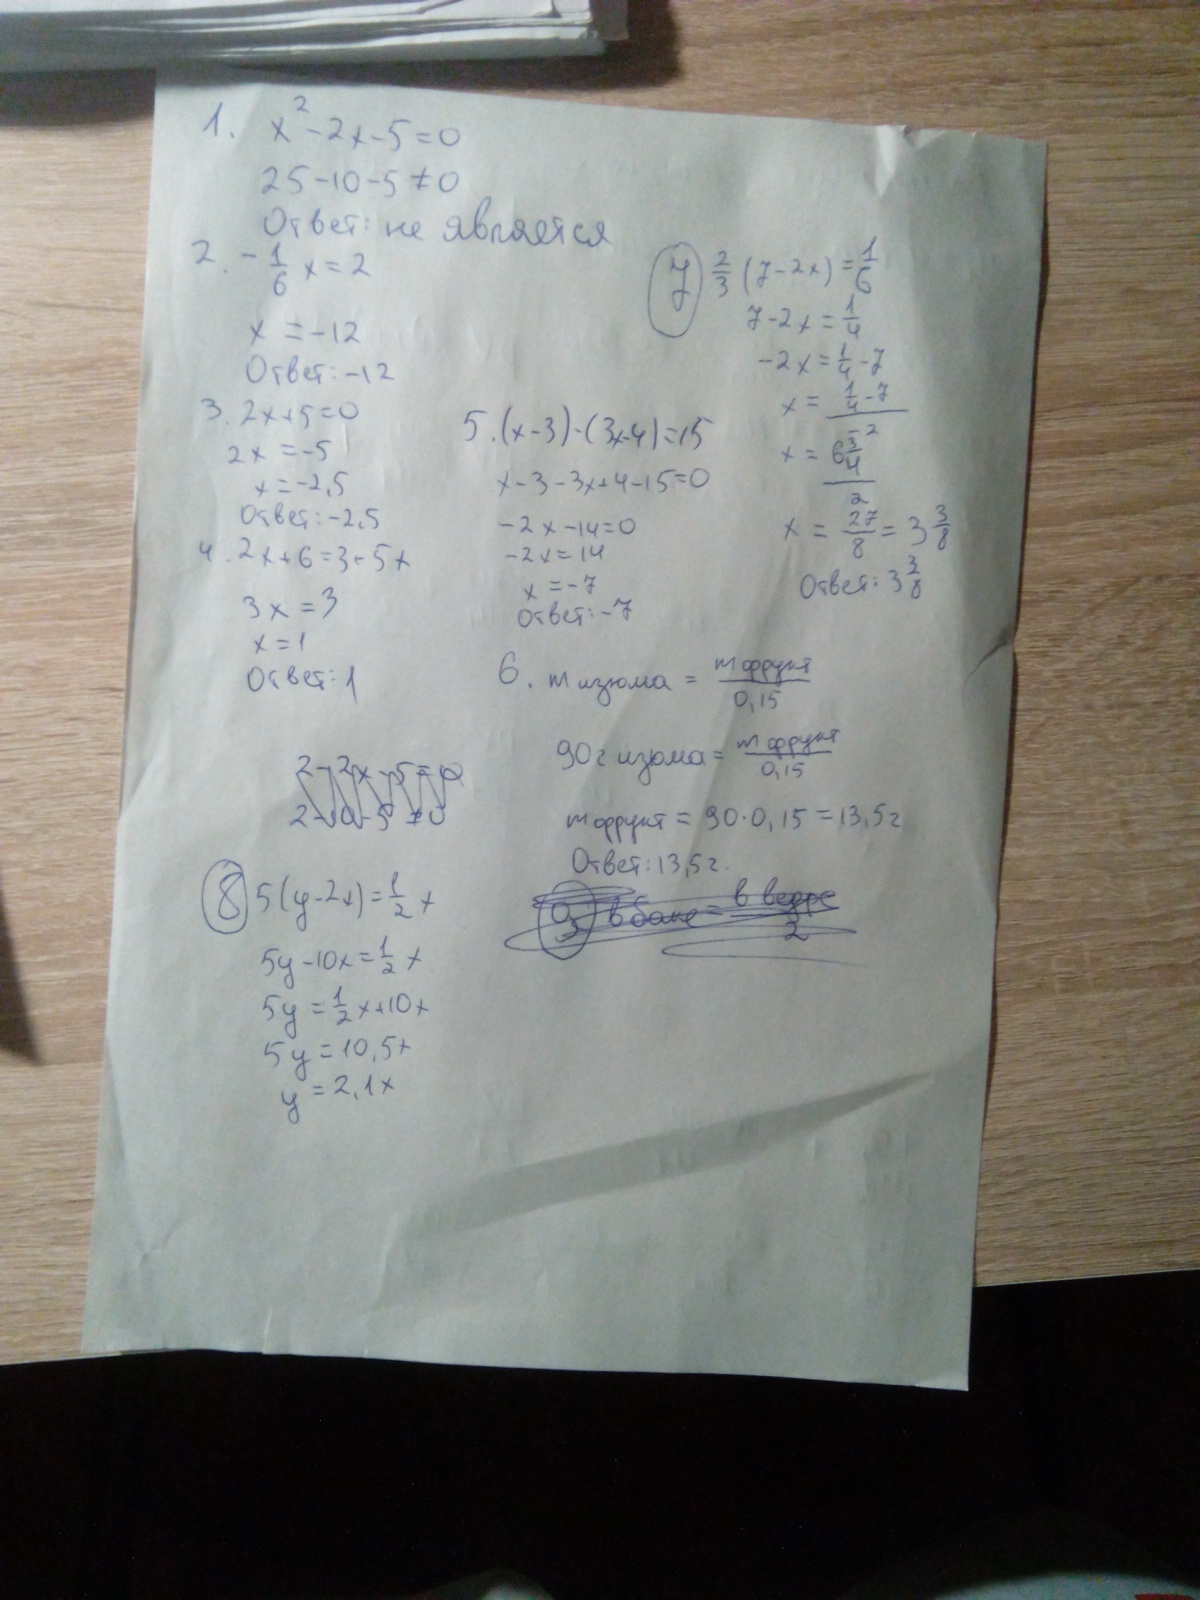 1. x² - 2x - 5 = 0
25 - 10 - 5 ≠ 0
Ответ: не является
2. -1/6 x = 2
x = -12
Ответ: -12
3. 2x + 5 = 0
2x = -5
x = -2,5
Ответ: -2,5
4. 2x + 6 = 3 + 5x
3x = 3
x = 1
Ответ: 1
5. (x - 3) - (3x - 4) = 15
x - 3 - 3x + 4 - 15 = 0
-2x - 14 = 0
-2x = 14
x = -7
Ответ: -7
6. m изюма = m фрукт / 0,15
90г изюма = m фрукт / 0,15
m фрукт = 90 · 0,15 = 13,5г
Ответ: 13,5г.
7 2/3 (7 - 2x) = 1/6
7 - 2x = 1/4
-2x = 1/4 - 7
x = (1/4 - 7) / -2
x = 6 3/4 / 2
x = 27/8 = 3 3/8
Ответ: 3 3/8
2 - 2x - 5 = 0
2 - 10 - 5 ≠ 0
8 5(y - 2x) = 1/2 x
5y - 10x = 1/2 x
5y = 1/2 x + 10x
5y = 10,5x
y = 2,1x
в баке = в ведре / 2